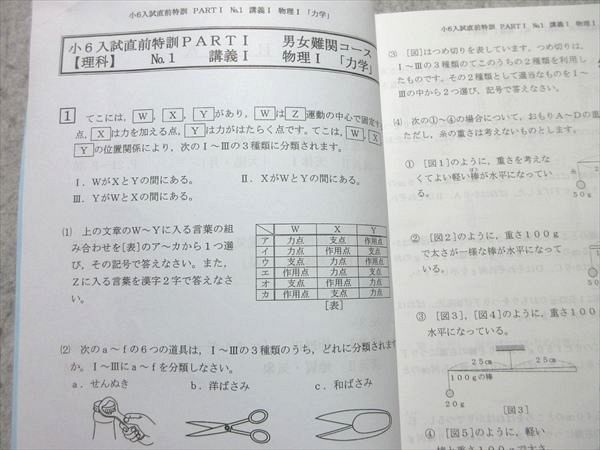 小6入試直前特訓 PARTⅠ №1 講義Ⅰ 物理Ⅰ「力学」
小6入試直前特訓PARTⅠ 男女難関コース
【理科】 №1 講義Ⅰ 物理Ⅰ 「力学」
1 てこには，W，X，Yがあり，WはZ運動の中心で固定す
点，Xは力を加える点，Yは力がはたらく点です。てこは，W，X
Yの位置関係により，次のⅠ～Ⅲの3種類に分類されます。
Ⅰ．WがXとYの間にある。 Ⅱ．XがWとYの間にある。
Ⅲ．YがWとXの間にある。
(1) 上の文章のW～Yに入る言葉の組
み合わせを[表]のア～カから1つ選
び，その記号で答えなさい。また，
Zに入る言葉を漢字2字で答えなさ
い。
W X Y
ア 力点 支点 作用点
イ 力点 作用点 支点
ウ 支点 力点 作用点
エ 作用点 力点 支点
オ 支点 作用点 力点
カ 作用点 支点 力点
[表]
(2) 次のa～fの6つの道具は，Ⅰ～Ⅲの3種類のうち，どれに分類されます
か。Ⅰ～Ⅲにa～fを分類しなさい。
a．せんぬき b．洋ばさみ c．和ばさみ
小6入試直前特訓 PARTⅠ №1 講義Ⅰ 物理Ⅰ「力学」
(3) [図]はつめ切りを表しています。つめ切りは，
Ⅰ～Ⅲの3種類のてこのうちの2種類を利用し
たものです。その2種類として適当なものをⅠ～
Ⅲの中から2つ選び，記号で答えなさい。
(4) 次の①～④の場合について，おもりA～Dの重
ただし，糸の重さは考えないものとします。
① [図1]のように，重さを考えな
くてよい軽い棒が水平になってい
る。
② [図2]のように，重さ100g
で太さが一様な棒が水平になって
いる。
③ [図3]，[図4]のように，重さ100
水平になっている。
25㎝ 25㎝
100gの棒
20g
[図3]
④ [図5]のように，軽い